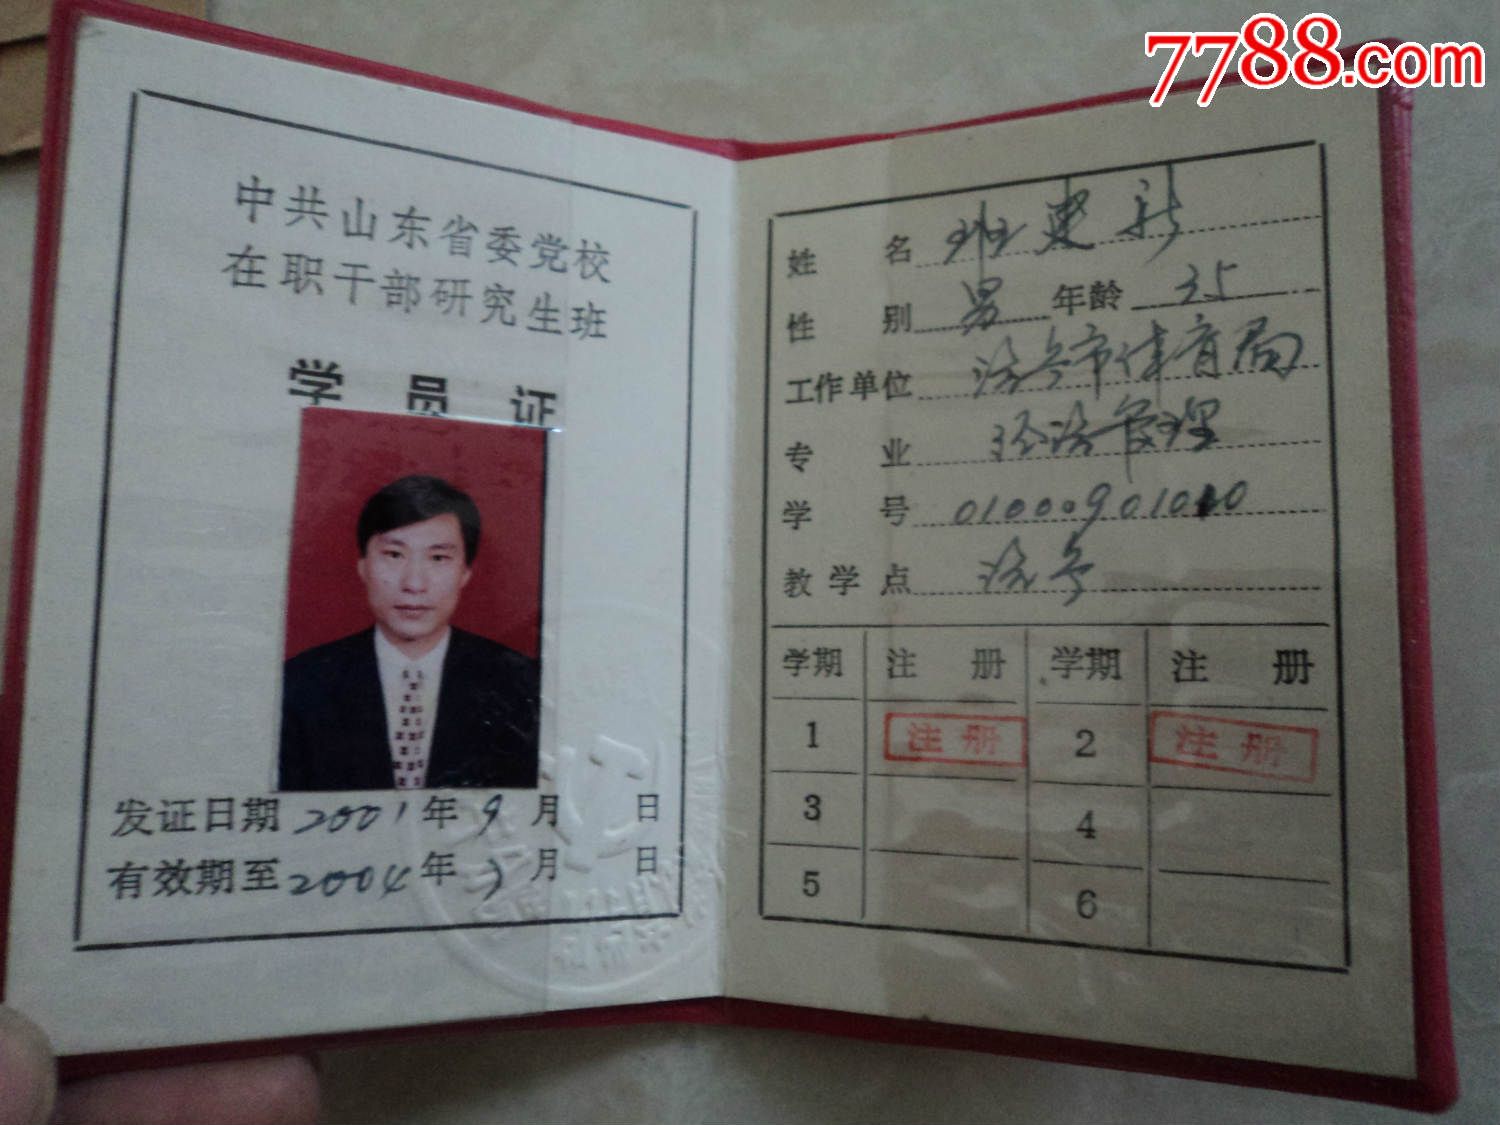 7788.com
中共山东省委党校
在职干部研究生班
学员证
发证日期 2001年9月 日
有效期至2004年 月 日
姓名 班建新
性别 男 年龄 35
工作单位 济宁市体育局
专业 经济管理
学号 01000901010
教学点 济宁
学期 注册 学期 注册
1 注册 2 注册
3 4
5 6